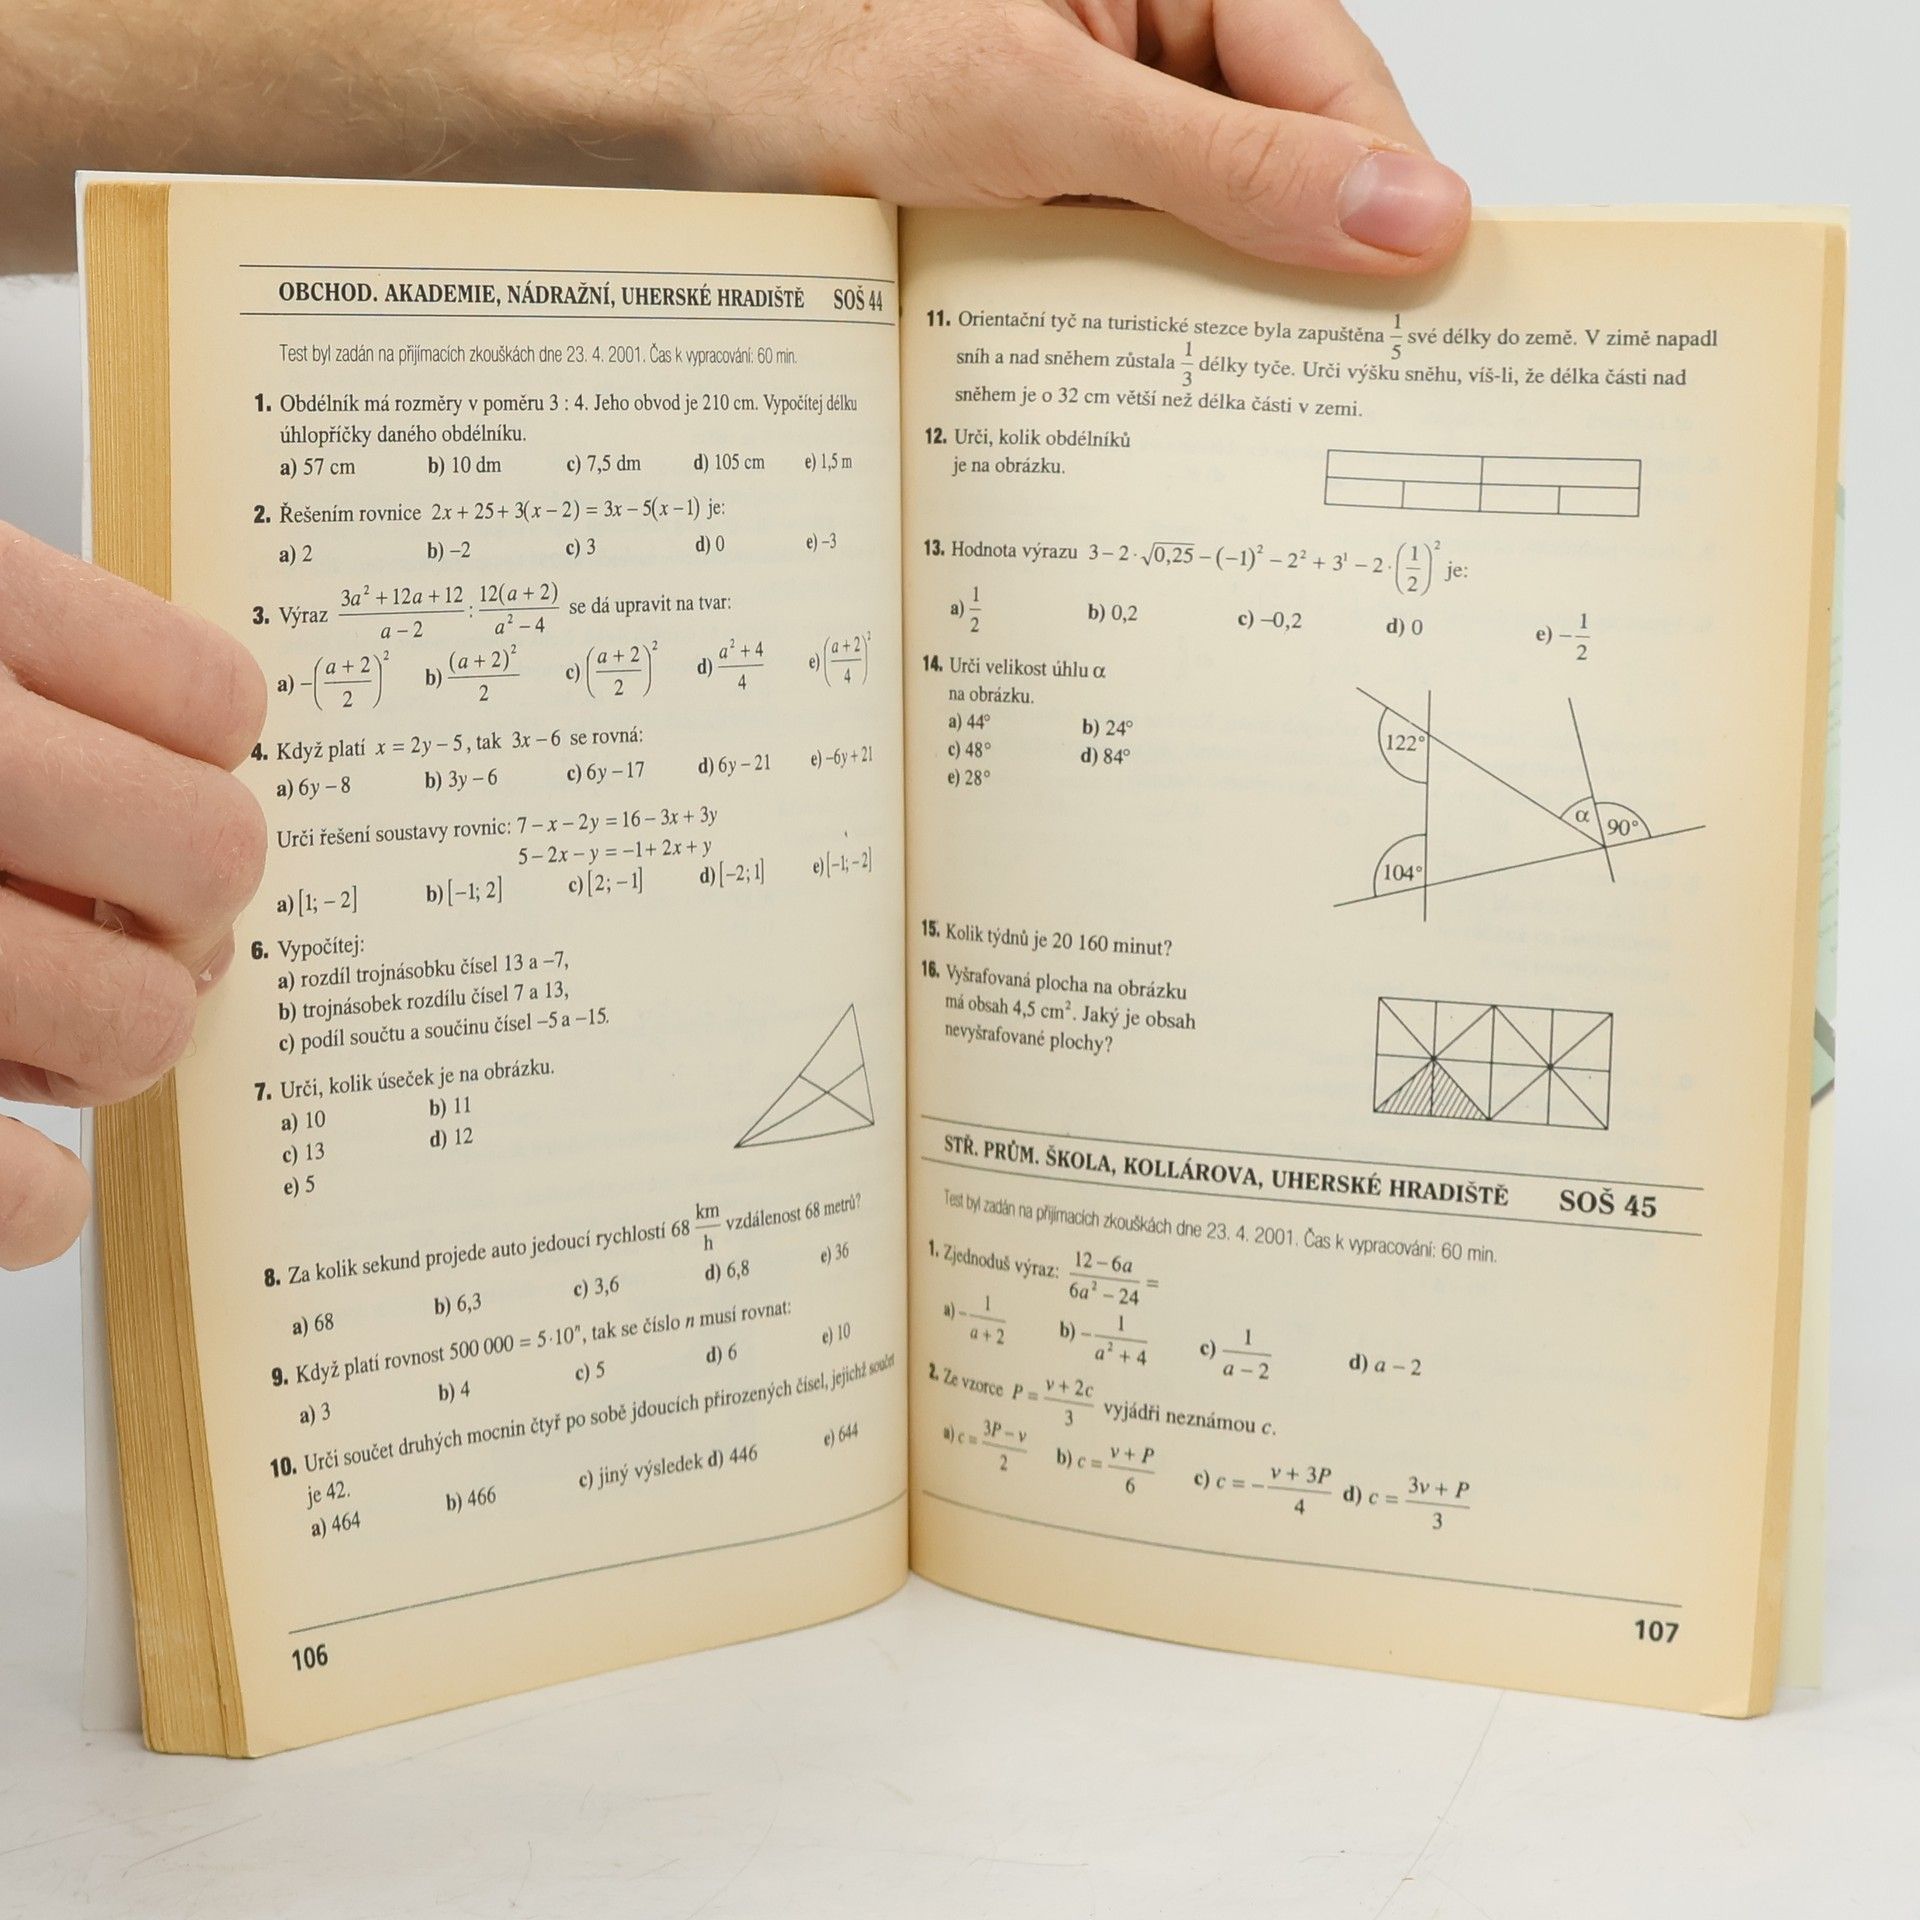 OBCHOD. AKADEMIE, NÁDRAŽNÍ, UHERSKÉ HRADIŠTĚ SOŠ 44
Test byl zadán na přijímacích zkouškách dne 23. 4. 2001. Čas k vypracování: 60 min.
1. Obdélník má rozměry v poměru 3 : 4. Jeho obvod je 210 cm. Vypočítej délku
úhlopříčky daného obdélníku.
a) 57 cm b) 10 dm c) 7,5 dm d) 105 cm e) 1,5 m
2. Řešením rovnice 2x + 25 + 3(x – 2) = 3x – 5(x – 1) je:
a) 2 b) –2 c) 3 d) 0 e) –3
3. Výraz (3a² + 12a + 12)/(a – 2) : (12(a + 2))/(a² – 4) se dá upravit na tvar:
a) –((a + 2)/2)² b) (a + 2)²/2 c) ((a + 2)/2)² d) (a² + 4)/4 e) ((a + 2)/4)²
4. Když platí x = 2y – 5, tak 3x – 6 se rovná:
a) 6y – 8 b) 3y – 6 c) 6y – 17 d) 6y – 21 e) –6y + 21
Urči řešení soustavy rovnic: 7 – x – 2y = 16 – 3x + 3y
5 – 2x – y = –1 + 2x + y
a) [1; – 2] b) [–1; 2] c) [2; –1] d) [–2; 1] e) [–1; –2]
6. Vypočítej:
a) rozdíl trojnásobku čísel 13 a –7,
b) trojnásobek rozdílu čísel 7 a 13,
c) podíl součtu a součinu čísel –5 a –15.
7. Urči, kolik úseček je na obrázku.
a) 10 b) 11
c) 13 d) 12
e) 5
8. Za kolik sekund projede auto jedoucí rychlostí 68 km/h vzdálenost 68 metrů?
a) 68 b) 6,3 c) 3,6 d) 6,8 e) 36
9. Když platí rovnost 500 000 = 5·10ⁿ, tak se číslo n musí rovnat:
a) 3 b) 4 c) 5 d) 6 e) 10
10. Urči součet druhých mocnin čtyř po sobě jdoucích přirozených čísel, jejichž součet
je 42.
a) 464 b) 466 c) jiný výsledek d) 446 e) 644
106
11. Orientační tyč na turistické stezce byla zapuštěna 1/5 své délky do země. V zimě napadl
sníh a nad sněhem zůstala 1/3 délky tyče. Urči výšku sněhu, víš-li, že délka části nad
sněhem je o 32 cm větší než délka části v zemi.
12. Urči, kolik obdélníků
je na obrázku.
13. Hodnota výrazu 3 – 2·√0,25 – (–1)² – 2² + 3¹ – 2·(1/2)² je:
a) 1/2 b) 0,2 c) –0,2 d) 0 e) –1/2
14. Urči velikost úhlu α
na obrázku.
a) 44° b) 24°
c) 48° d) 84°
e) 28°
122°
α 90°
104°
15. Kolik týdnů je 20 160 minut?
16. Vyšrafovaná plocha na obrázku
má obsah 4,5 cm². Jaký je obsah
nevyšrafované plochy?
STŘ. PRŮM. ŠKOLA, KOLLÁROVA, UHERSKÉ HRADIŠTĚ SOŠ 45
Test byl zadán na přijímacích zkouškách dne 23. 4. 2001. Čas k vypracování: 60 min.
1. Zjednoduš výraz: (12 – 6a)/(6a² – 24) =
a) –1/(a + 2) b) –1/(a² + 4) c) 1/(a – 2) d) a – 2
2. Ze vzorce P = (v + 2c)/3 vyjádři neznámou c.
a) c = (3P – v)/2 b) c = (v + P)/6 c) c = –(v + 3P)/4 d) c = (3v + P)/3
107